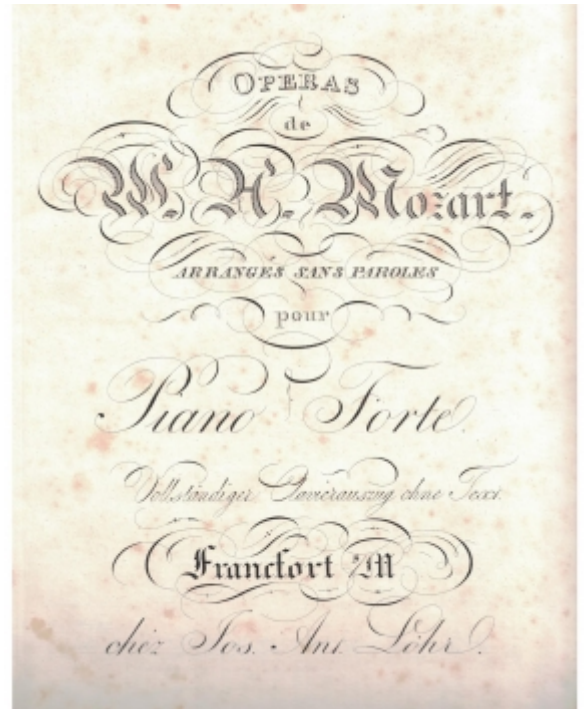 OPERAS
de
W. A. Mozart.
ARRANGES SANS PAROLES
pour
Piano Forte.
Vollständiger Clavierauszug ohne Text.
Francfort ᵃ/M
chéz Jos. Ant. Löhr.